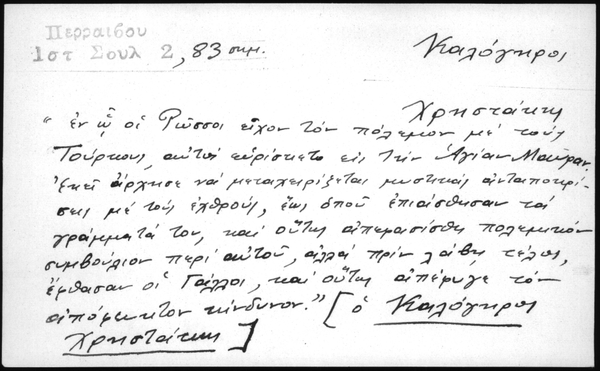 Περραιβου
1στ Σουλ 2, 83 σημ.
Καλόγηροι
Χρηστάκη
"ἐν ᾧ οἱ Ρῶσσοι εἶχον τόν πόλεμον μέ τούς
Τούρκους, αὐτός εὑρίσκετο εἰς τήν Ἁγίαν Μαῦραν.
Ἐκεῖ ἄρχησε νά μεταχειρίζεται μυστικάς ἀνταποκρί-
σεις μέ τούς ἐχθρούς, ἕως ὁποῦ ἐπιάσθησαν τά
γράμματά του, καί οὕτως ἀπεφασίσθη πολεμικόν
συμβούλιον περί αὐτοῦ, ἀλλά πρίν λάβῃ τέλος,
ἔφθασαν οἱ Γάλλοι, καί οὕτως ἀπέφυγε τόν
ἀπόφευκτον κίνδυνον." [ὁ Καλόγηρος
Χρηστάκης]